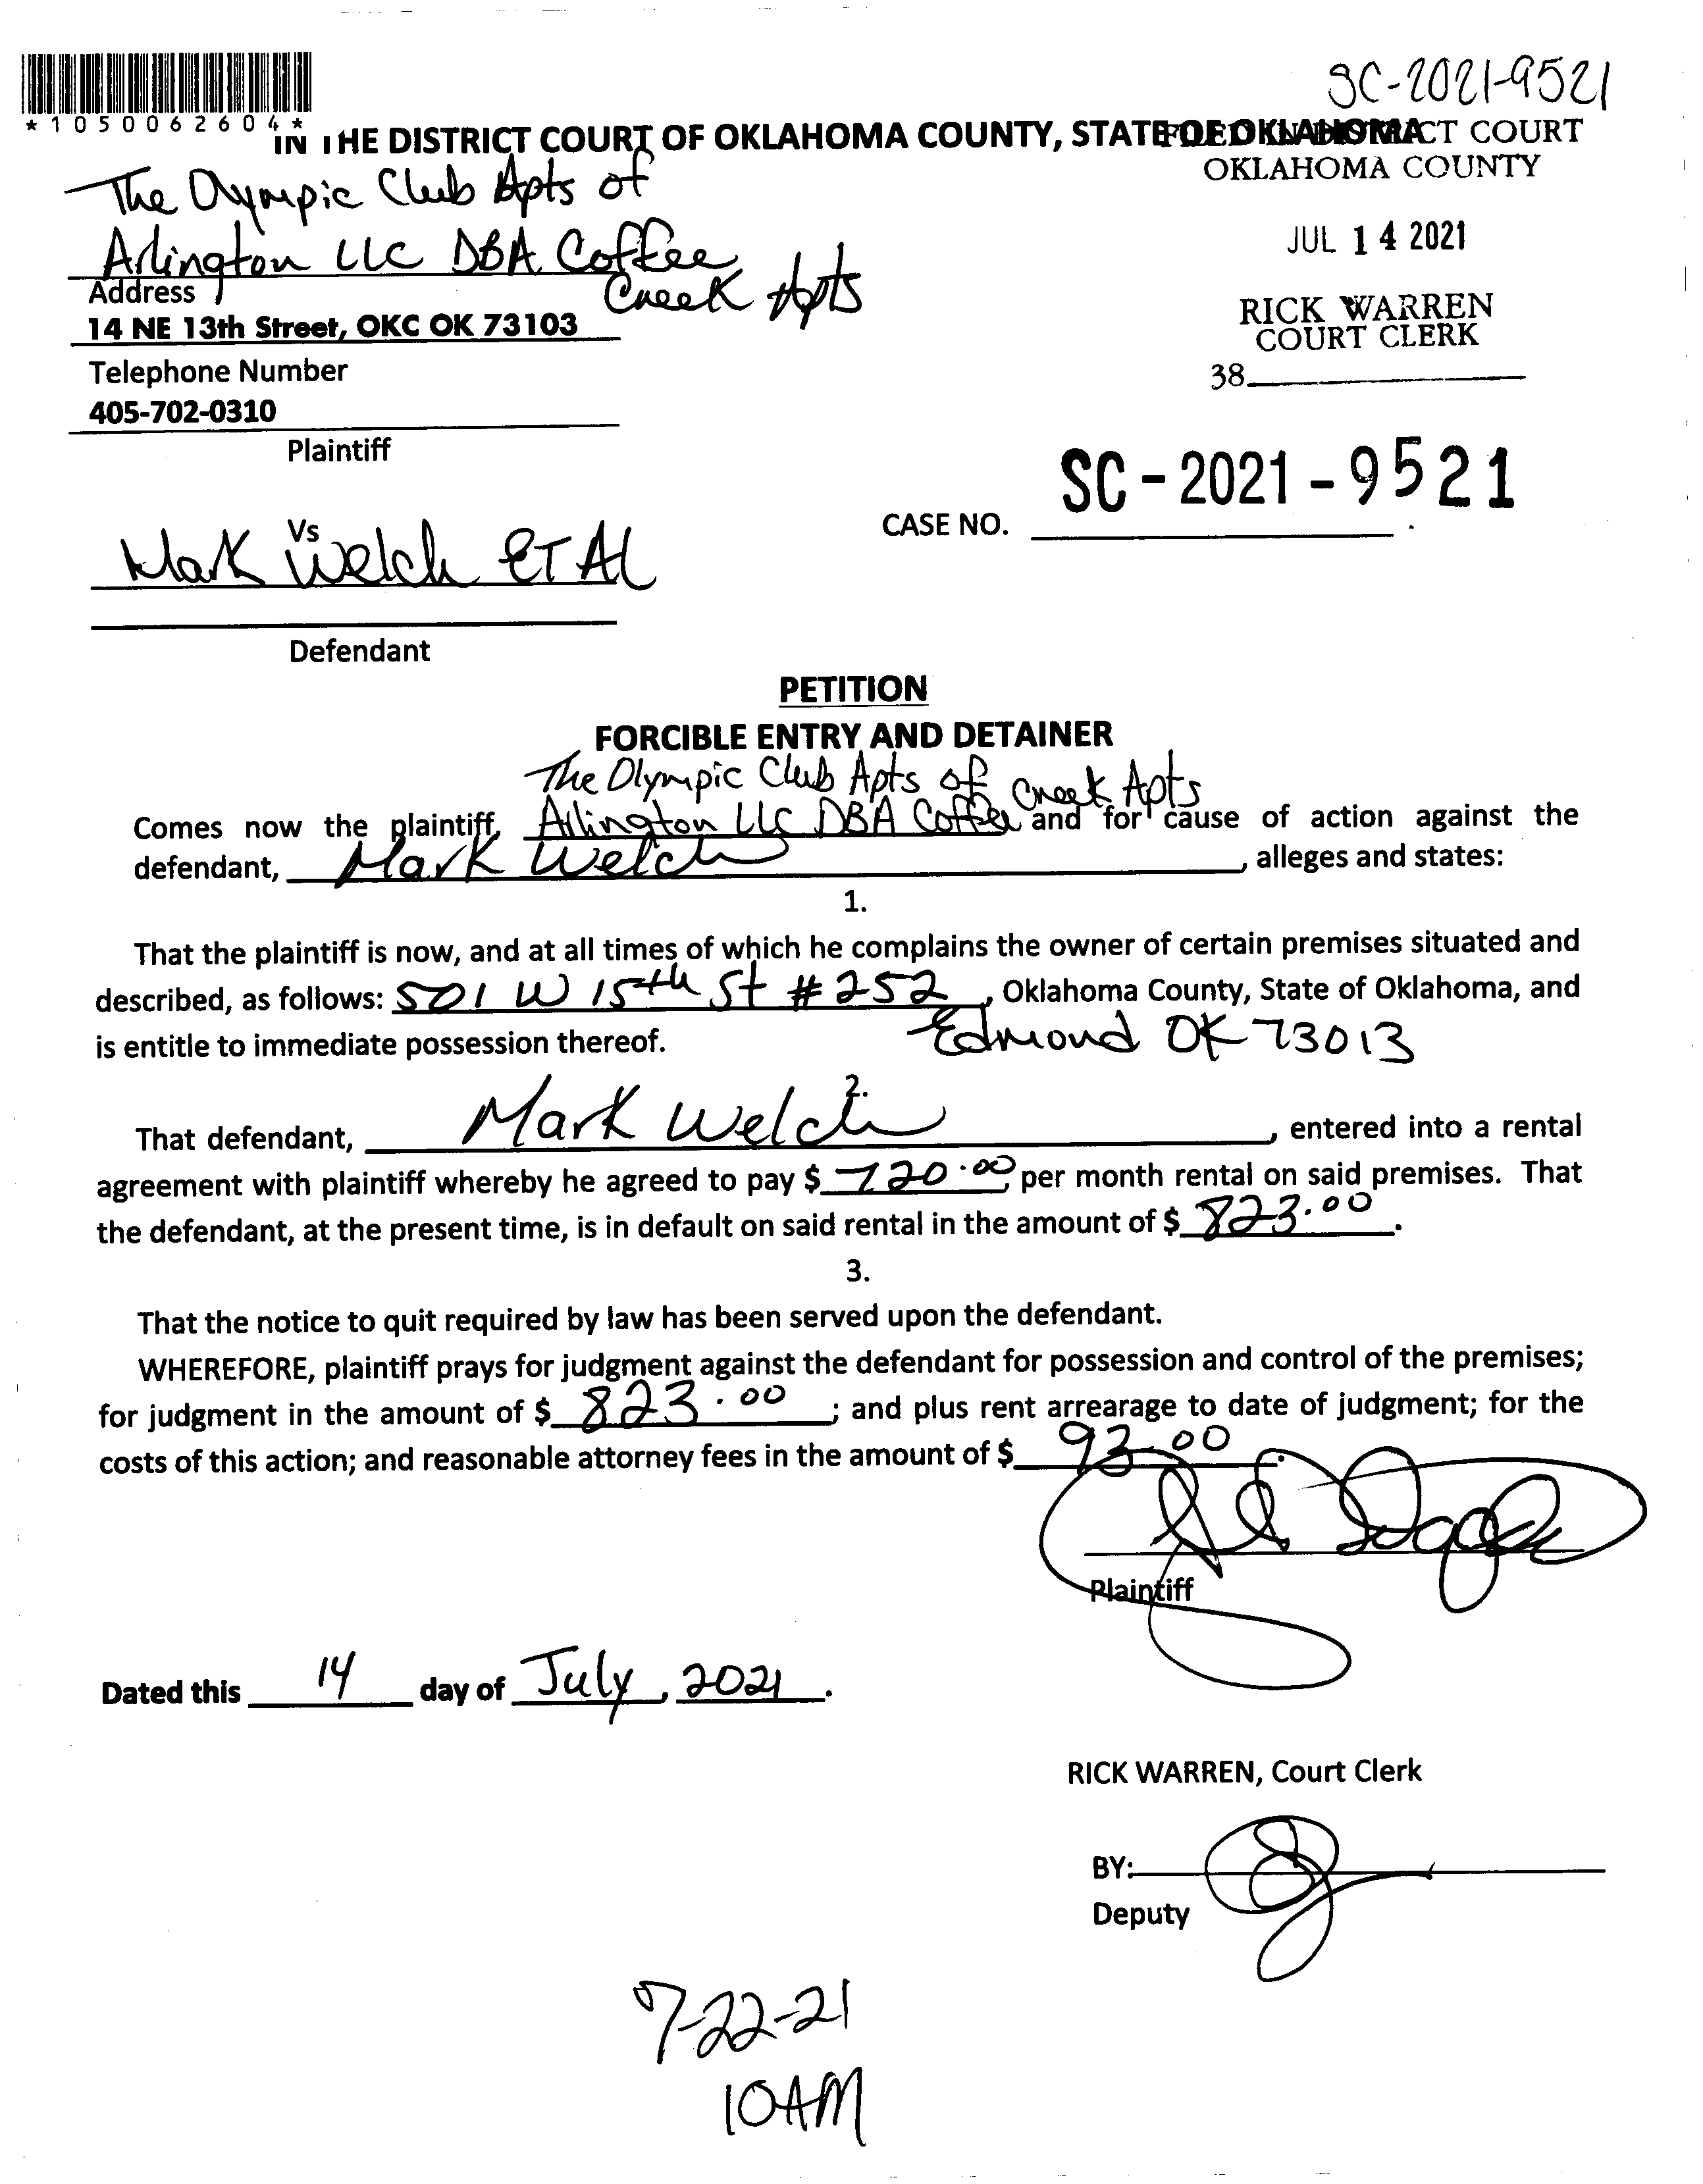 SC-2021-9521
*1050062604*
IN THE DISTRICT COURT OF OKLAHOMA COUNTY, STATE OF OKLAHOMA
FILED IN DISTRICT COURT
OKLAHOMA COUNTY
The Olympic Club Apts of
Arlington LLC DBA Coffee
Creek Apts
JUL 14 2021
Address
14 NE 13th Street, OKC OK 73103
RICK WARREN
COURT CLERK
Telephone Number
38
405-702-0310
Plaintiff
SC-2021-9521
CASE NO.
Vs
Mark Welch ET AL
Defendant
PETITION
FORCIBLE ENTRY AND DETAINER
The Olympic Club Apts of Creek Apts
Comes now the plaintiff, Arlington LLC DBA Coffee and for cause of action against the
defendant, Mark Welch, alleges and states:
1.
That the plaintiff is now, and at all times of which he complains the owner of certain premises situated and
described, as follows: 501 W 15th St #252, Oklahoma County, State of Oklahoma, and
is entitle to immediate possession thereof. Edmond OK 73013
2.
That defendant, Mark Welch, entered into a rental
agreement with plaintiff whereby he agreed to pay $ 720.00 per month rental on said premises. That
the defendant, at the present time, is in default on said rental in the amount of $ 823.00.
3.
That the notice to quit required by law has been served upon the defendant.
WHEREFORE, plaintiff prays for judgment against the defendant for possession and control of the premises;
for judgment in the amount of $ 823.00; and plus rent arrearage to date of judgment; for the
costs of this action; and reasonable attorney fees in the amount of $ 93.00.
Plaintiff
Dated this 14 day of July, 2021.
RICK WARREN, Court Clerk
BY:
Deputy
7-22-21
10AM